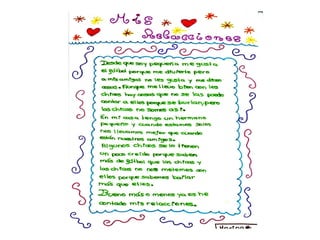 Mis
Relacciones
Desde que soy pequeña me gusta
el fútbol porque me divierte pero
a mis amigas no les gusta y me dicen
cosas. Aunque me llevo bien con los
chicos hay cosas que no se las puedo
contar a ellos porque se burlan, pero
las chicas no somos así.
En mi casa tengo un hermano
pequeño y cuando estamos solos
nos llevamos mejor que cuando
están nuestros amigos.
Algunos chicos se lo tienen
un poco creído porque saben
más de fútbol que las chicas y
las chicas no nos metemos con
ellos porque sabemos bailar
más que ellos.
Bueno más o menos ya os he
contado mis relacciones.